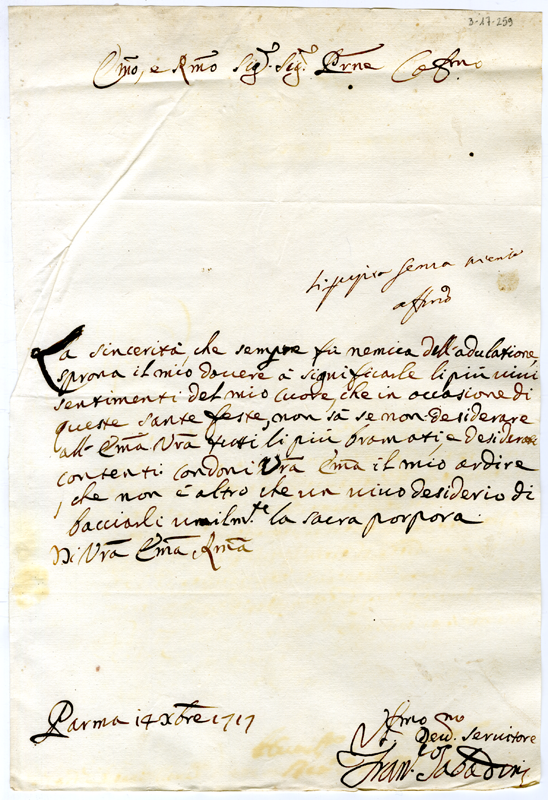 3-17-259
Emo, e Rmo Sigr. Sigr. Prne Colmo
senza
La sincerità, che sempre fù nemica dell'adulatione,
sprona il mio dovere à significarle li più vivi
sentimenti del mio cuore, che in occasione di
queste sante feste, non sà se non desiderare
all'Emã Vrã tutti li più bramati, e desiderati
contenti condoni Vrã Emã il mio ardire
, che non è altro che un vivo desiderio di
bacciarli umilm.te la sacra porpora
Di Vrã Emã, Rmã
Parma 14 Xbre 1717
Dev. Servitore
Fran.co Sabadini